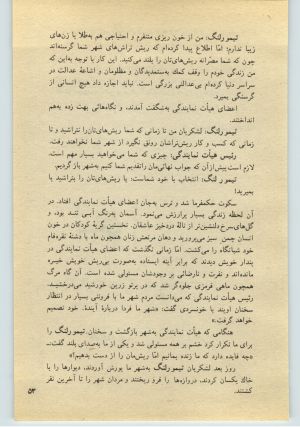 تیمورلنگ: من از خون ریزی متنفرم و احتیاجی هم به‌طلا یا زن‌های
زیبا ندارم؛ امّا اطلاع پیدا کرده‌ام که ریش تراش‌های شهر شما گرسنه‌اند
چون که شما مصرّانه ریش‌های‌تان را بلند می‌کنید. این کار با توجه به‌این که
من زندگی خودم را وقف کمك به‌ستمدیدگان و مظلومان و اشاعهٔ عدالت در
سراسر دنیا کرده‌ام بی‌عدالتی بزرگی است. نباید اجازه داد هیچ انسانی از
گرسنگی بمیرد.
اعضای هیأت نمایندگی به‌شگفت آمدند، و نگاه‌هائی بهت زده به‌هم
انداختند.
تیمورلنگ: لشکریان من تا زمانی که شما ریش‌های‌تان‌را نتراشید و تا
زمانی که کسب و کار ریش‌تراشان رونق نگیرد از شهر شما نخواهند رفت.
رئیس هیأت نمایندگی: چیزی که شما می‌خواهید بسیار مهم است.
لازم‌است پیش‌ازآن که جواب نهائی‌مان راتقدیم شما کنیم به‌شهر باز گردیم.
تیمورلنگ: انتخاب با خود شماست: یا ریش‌های‌تان را بتراشید یا
بمیرید!
سکوت حکمفرما شد و ترس به‌جان اعضای هیأت نمایندگی افتاد. در
آن لحظه زندگی بسیار پرارزش می‌نمود. آسمان به‌رنگ آبی تند بود، و
گل‌های‌سرخ‌دلنشین‌تر از نالهٔ دردخیز عاشقان. نخستین گریهٔ کودکان در خون
انسان جنین سبز می‌رویید و دهان مرتعش زنان همچون ماه با دشنهٔ نقره‌فام
خود شبانگاه را می‌کشت. امّا زمانی نگذشت که اعضای هیأت نمایندگی در
پندار خویش دیدند که برابر آینه ایستاده به‌صورت بی‌ریش خویش خیره
مانده‌اند و نفرت و نارضائی بر وجودشان مسئولی شده است. آن گاه مرگ
همچون ماهی قرمزی جلوه‌گر شد که در پرتو زرین خورشید می‌درخشید.
رئیس هیأت نمایندگی که می‌دانست مردم شهر ما با فروتنی بسیار در انتظار
سخنان اویند با خونسردی گفت: «شهر ما فردا دربارهٔ آیندهٔ خود تصمیم
خواهد گرفت.»
هنگامی که هیأت نمایندگی به‌شهر بازگشت و سخنان تیمورلنگ را
برای ما تکرار کرد خشم بر همه مسئولی شد و یکی از ما به‌صدای بلند گفت:
«چه فایده دارد که ما زنده بمانیم امّا ریش‌مان را از دست بدهیم؟»
روز بعد لشکریان تیمورلنگ به‌شهر ما یورش آوردند، دیوارها را با
خاك یکسان کردند، دروازه‌ها را فرو ریختند و مردان شهر را تا آخرین نفر
کشتند.
۵۳